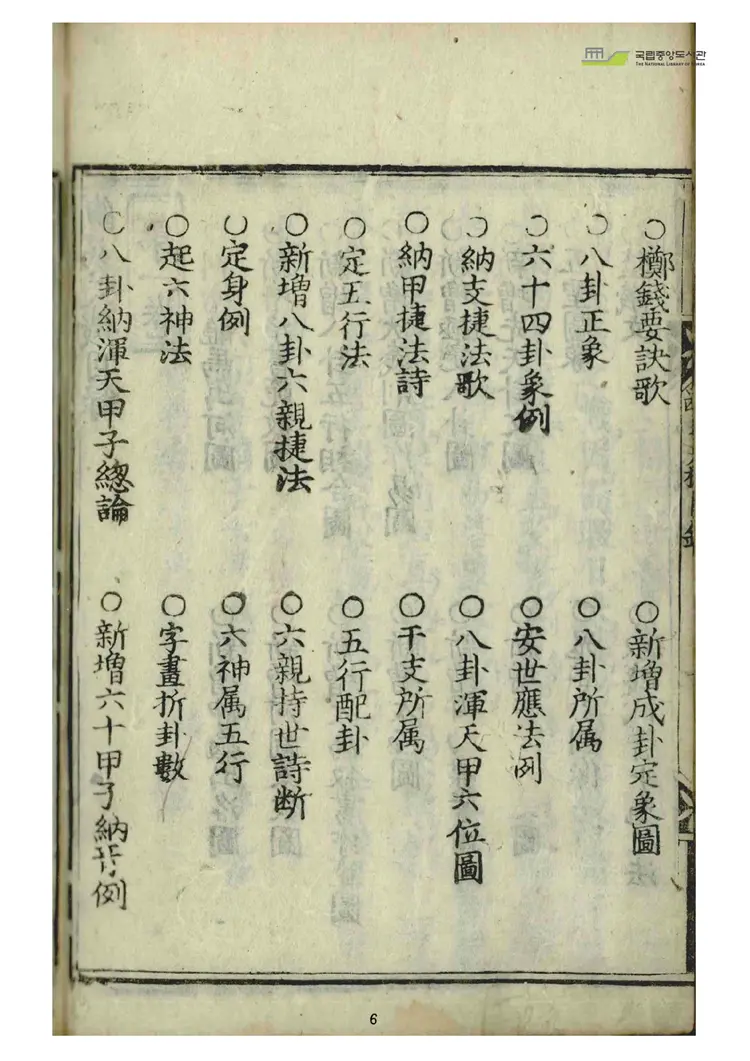 국립중앙도서관
THE NATIONAL LIBRARY OF KOREA
○擲錢要訣歌
○新增成卦定象圖
○八卦正象
○八卦所属
○六十四卦象例
○安世應法例
○納支捷法歌
○八卦渾天甲六位圖
○納甲捷法詩
○干支所属
○定五行法
○五行配卦
○新增八卦六親捷法
○六親持世詩断
○定身例
○六神属五行
○起六神法
○字畫折卦數
○八卦納渾天甲子總論
○新增六十甲子納音例
6